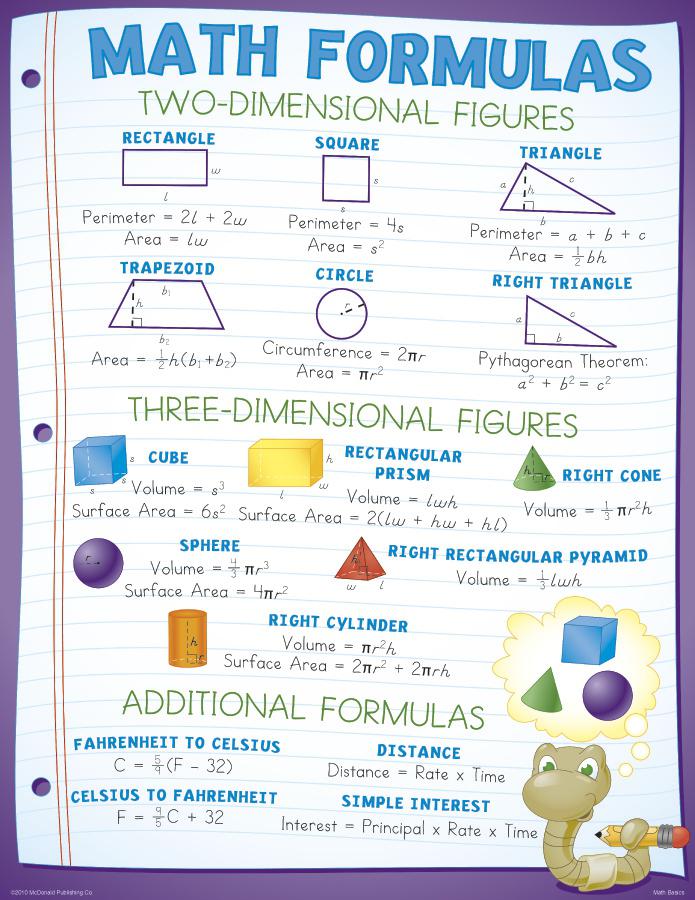 MATH FORMULAS
TWO-DIMENSIONAL FIGURES
RECTANGLE
w
l
Perimeter = 2l + 2w
Area = lw
SQUARE
s
s
Perimeter = 4s
Area = s²
TRIANGLE
a
h
c
b
Perimeter = a + b + c
Area = ½bh
TRAPEZOID
b₁
h
b₂
Area = ½h(b₁+b₂)
CIRCLE
r
Circumference = 2πr
Area = πr²
RIGHT TRIANGLE
a
c
b
Pythagorean Theorem:
a² + b² = c²
THREE-DIMENSIONAL FIGURES
CUBE
s
s
s
Volume = s³
Surface Area = 6s²
RECTANGULAR
PRISM
h
w
l
Volume = lwh
Surface Area = 2(lw + hw + hl)
RIGHT CONE
h
r
Volume = ⅓πr²h
SPHERE
r
Volume = 4/3 πr³
Surface Area = 4πr²
RIGHT RECTANGULAR PYRAMID
h
w
l
Volume = ⅓lwh
RIGHT CYLINDER
h
r
Volume = πr²h
Surface Area = 2πr² + 2πrh
ADDITIONAL FORMULAS
FAHRENHEIT TO CELSIUS
C = 5/9(F - 32)
DISTANCE
Distance = Rate x Time
CELSIUS TO FAHRENHEIT
F = 9/5C + 32
SIMPLE INTEREST
Interest = Principal x Rate x Time
©2010 McDonald Publishing Co.
Math Basics